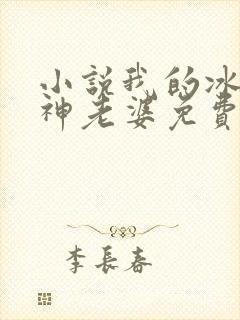 小説我的冰
神老婆免費
李長春